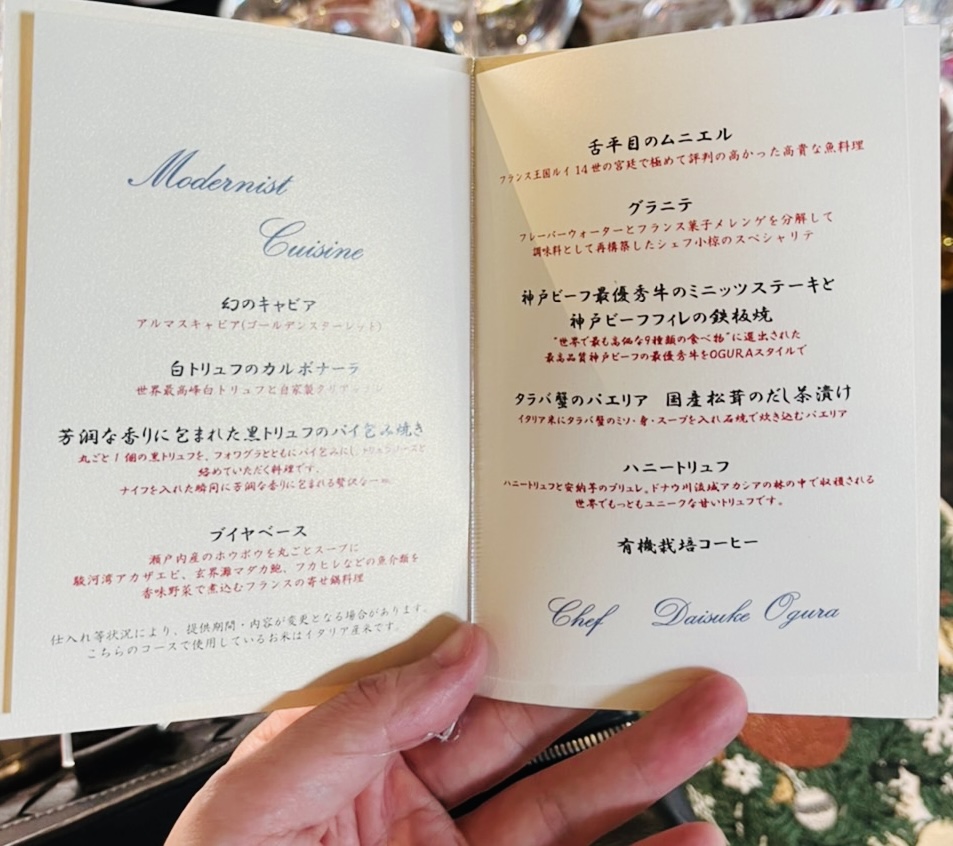 Modernist
Cuisine
幻のキャビア
アルマスキャビア(ゴールデンスターレット)
白トリュフのカルボナーラ
世界最高峰白トリュフと自家製
芳潤な香りに包まれた黒トリュフのパイ包み焼き
丸ごと1個の黒トリュフを、フォワグラとともにパイ包みにし、トリュフソースと
絡めていただく料理です。
ナイフを入れた瞬間に芳潤な香りに包まれる贅沢な一皿
ブイヤベース
瀬戸内産のホウボウを丸ごとスープに
駿河湾アカザエビ、玄界灘マダカ鮑、フカヒレなどの魚介類を
香味野菜で煮込むフランスの寄せ鍋料理
仕入れ等状況により、提供期間・内容が変更となる場合があります。
こちらのコースで使用しているお米はイタリア産米です。
舌平目のムニエル
フランス王国ルイ14世の宮廷で極めて評判の高かった高貴な魚料理
グラニテ
フレーバーウォーターとフランス菓子メレンゲを分解して
調味料として再構築したシェフ小椋のスペシャリテ
神戸ビーフ最優秀牛のミニッツステーキと
神戸ビーフフィレの鉄板焼
"世界で最も高価な9種類の食べ物"に選出された
最高品質神戸ビーフの最優秀牛をOGURAスタイルで
タラバ蟹のパエリア 国産松茸のだし茶漬け
イタリア米にタラバ蟹のミソ・身・スープを入れ石焼で炊き込むパエリア
ハニートリュフ
ハニートリュフと安納芋のブリュレ、ドナウ川流域アカシアの林の中で収穫される
世界でもっともユニークな甘いトリュフです。
有機栽培コーヒー
Chef Daisuke Ogura